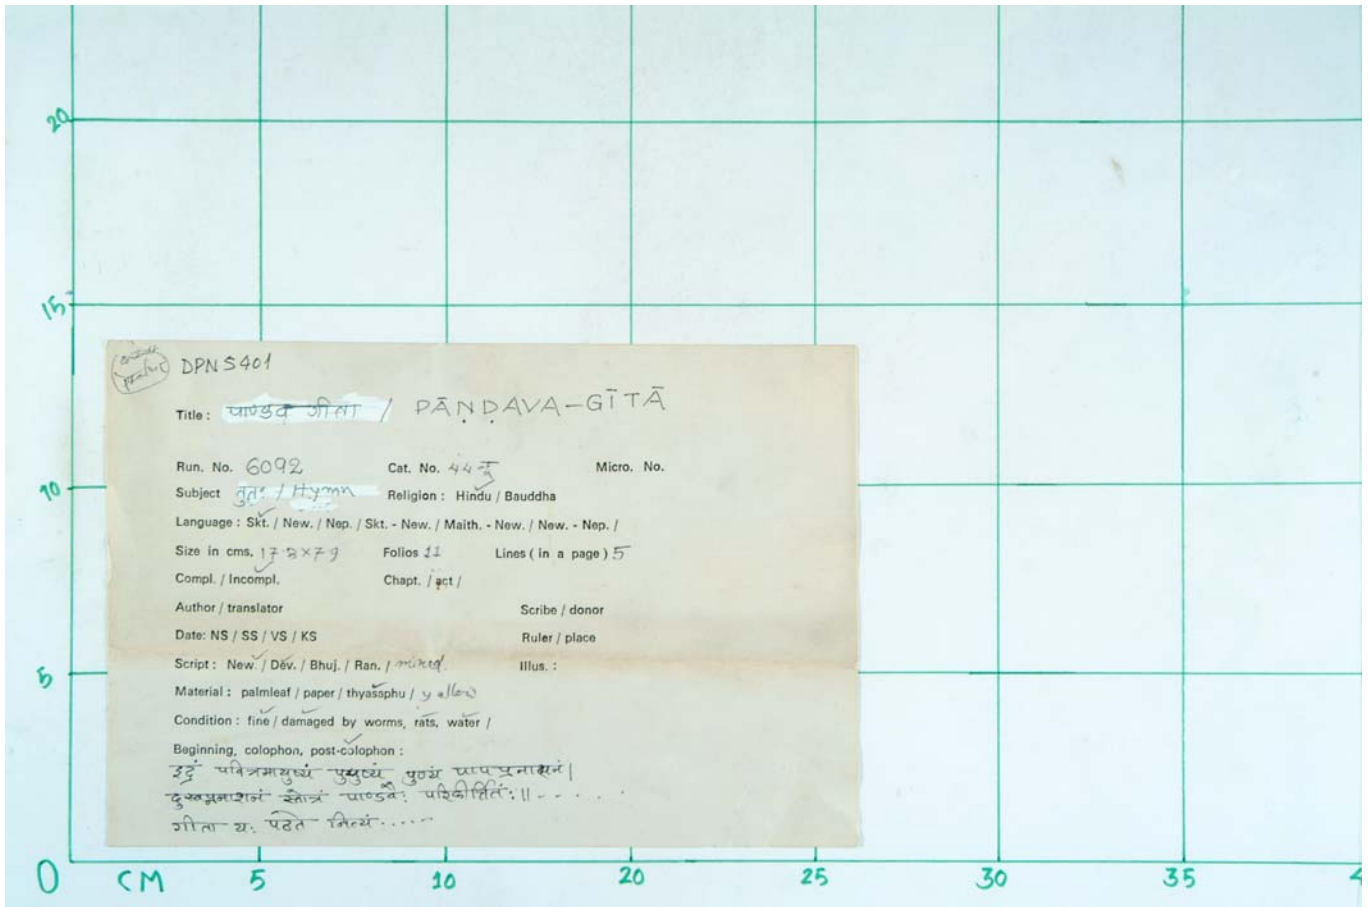 20
15
DPN5401
Title: पाण्डव गीता / PĀṆḌAVA-GĪTĀ
Run. No. 6092 Cat. No. 44 Micro. No.
10
Subject / Hymn Religion: Hindu / Bauddha
Language: Skt. / New. / Nep. / Skt. - New. / Maith. - New. / New. - Nep. /
Size in cms. Folios 11 Lines ( in a page ) 5
Compl. / Incompl. Chapt. / act /
Author / translator Scribe / donor
Date: NS / SS / VS / KS Ruler / place
5
Script: New. / Dev. / Bhuj. / Ran. / mixed. Illus. :
Material: palmleaf / paper / thyasaphu / yellow
Condition: fine / damaged by worms, rats, water /
Beginning, colophon, post-colophon :
इदं पवित्रमायुष्यं पुण्यं पापप्रनासनं।
स्तोत्रं पाण्डवैः परिकीर्त्तितं:॥ - . . . . .
गीता यः पठते नित्यं.....
0 CM 5 10 20 25 30 35 4